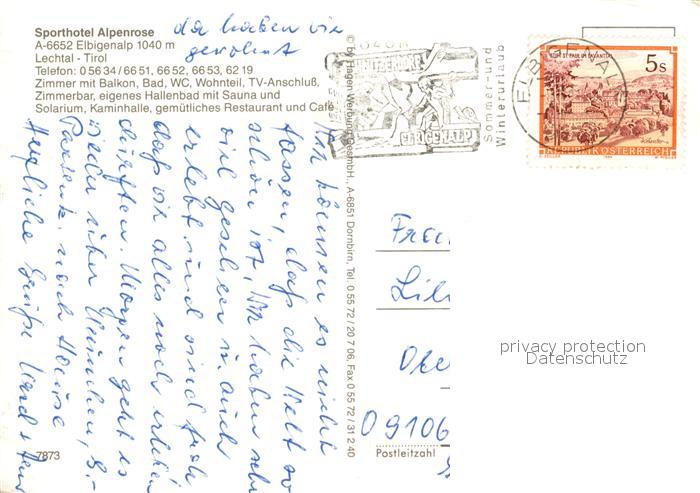 Sporthotel Alpenrose
A-6652 Elbigenalp 1040 m
Lechtal - Tirol
Telefon: 0 56 34 / 66 51, 66 52, 66 53, 62 19
Zimmer mit Balkon, Bad, WC, Wohnteil, TV-Anschluß,
Zimmerbar, eigenes Hallenbad mit Sauna und
Solarium, Kaminhalle, gemütliches Restaurant und Café
da haben wir
gewohnt
Wir können es nicht
fassen, daß die Welt so
schön ist. Wir haben sehr
viel gesehen u. auch
erlebt und sind froh
daß wir alles noch erleben
durften. Morgen geht es
wieder über München, 
nach Hause
Herzliche Grüße
7873
© by Hagen Werbung GesmbH, A-6851 Dornbirn, Tel. 0 55 72 / 20 7 06, Fax 0 55 72 / 31 2 40
ELBIGENALP
Sommer- und
Winterurlaub
ELBIGENALP
5 S
REPUBLIK ÖSTERREICH
Frau
09106
Postleitzahl
privacy protection
Datenschutz